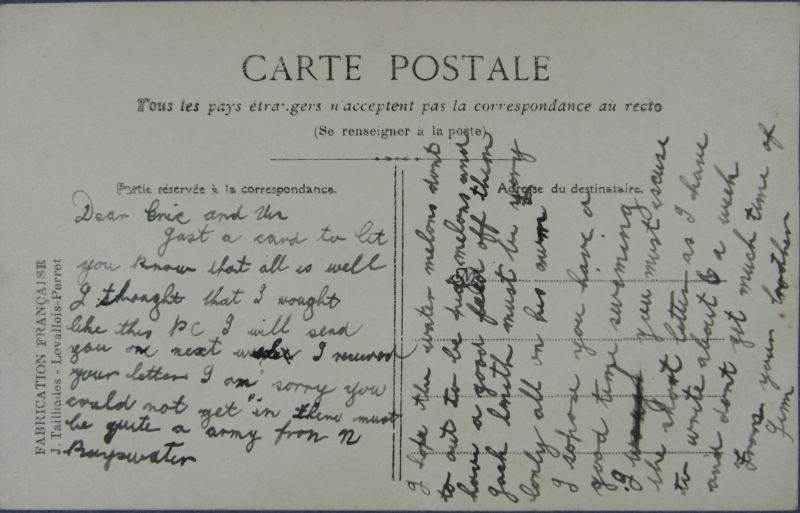 CARTE POSTALE
Tous les pays étrangers n'acceptent pas la correspondance au recto
(Se renseigner à la poste)
Partie réservée à la correspondance.
Adresse du destinataire.
FABRICATION FRANÇAISE
J. Tailhades - Levallois-Perret
Dear Eric and
Just a card to let
you know that all is well
I thought that I wought
like this PC I will send
you one next I received
your letter I am sorry you
could not get in there must
be quite a army from
Bayswater
I hope the water melons dont
to out to be melons and
have a good feed off them
Jack must be very
lonly all on his own
I sopose you have a
good time swiming
I you must iscuse
the short letter as I have
to write about 6 a week
and dont get much time of
From your brother
Jim